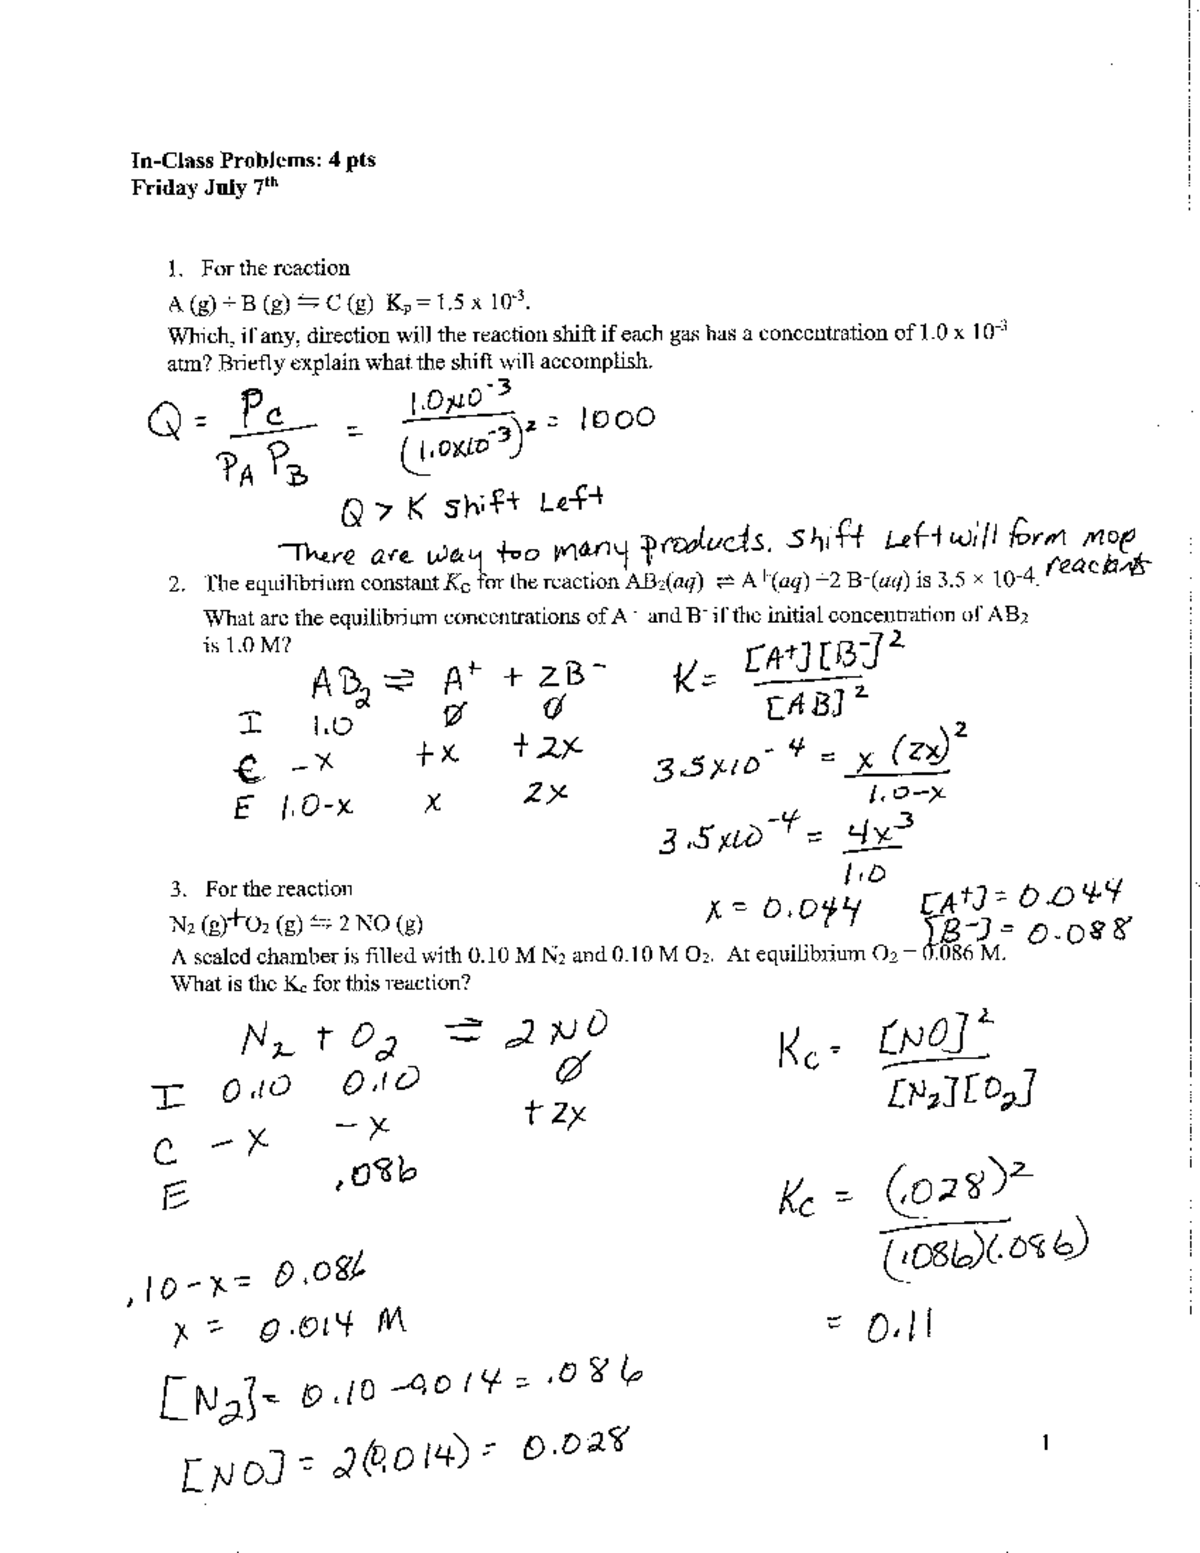 In-Class Problems: 4 pts
Friday July 7th
1. For the reaction
A (g) + B (g) ⇋ C (g) Kp = 1.5 x 10-3.
Which, if any, direction will the reaction shift if each gas has a concentration of 1.0 x 10-3
atm? Briefly explain what the shift will accomplish.
Q = PC / PA PB = 1.0x10-3 / (1.0x10-3)2 = 1000
Q > K shift Left
There are way too many products. Shift Left will form more
reactants
2. The equilibrium constant KC for the reaction AB2(aq) ⇌ A+(aq) + 2 B-(aq) is 3.5 × 10-4.
What are the equilibrium concentrations of A+ and B- if the initial concentration of AB2
is 1.0 M?
AB2 ⇌ A+ + 2B-
I 1.0 Ø Ø
C -x +x +2x
E 1.0-x x 2x
K = [A+][B-]2 / [AB]2
3.5x10-4 = x (2x)2 / 1.0-x
3.5x10-4 = 4x3 / 1.0
x = 0.044 [A+] = 0.044
[B-] = 0.088
3. For the reaction
N2 (g)+O2 (g) ⇋ 2 NO (g)
A sealed chamber is filled with 0.10 M N2 and 0.10 M O2. At equilibrium O2 = 0.086 M.
What is the Kc for this reaction?
N2 + O2 ⇌ 2NO
I 0.10 0.10 Ø
C -x -x +2x
E .086
.10-x = 0.086
x = 0.014 M
[N2] = 0.10 -0.014 = .086
[NO] = 2(0.014) = 0.028
Kc = [NO]2 / [N2][O2]
Kc = (.028)2 / (.086)(.086)
= 0.11
1